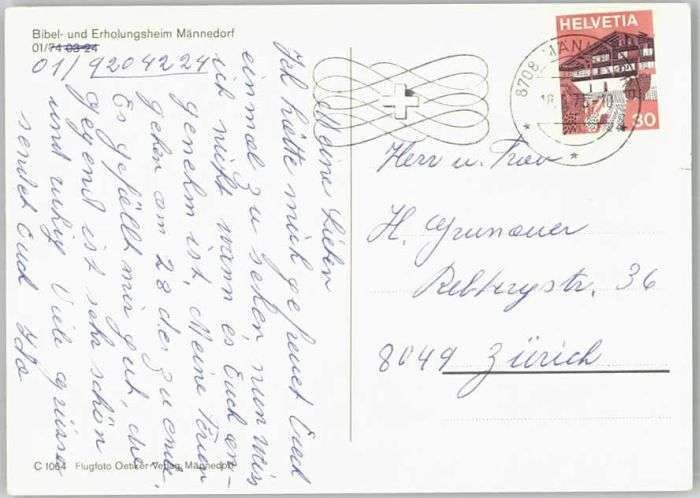 Bibel- und Erholungsheim Männedorf
01/74 03 24
01/9204224
Meine Lieben
Ich hätte mich gefreut Euch
einmal zu sehen nun weiss
ich nicht wann es Euch an-
genehm ist. Meine Ferien
gehen am 28 des zu ende.
Es gefällt mir gut, die
gegend ist sehr schön
und ruhig Viele grüsse
sendet Euch Ida
C 1064 Flugfoto Oetiker-Verlag, Männedorf
HELVETIA
30
8708 MÄNN
18.
Herr u. Frau
H. Grunauer
Rebbergstr. 36
8049 Zürich